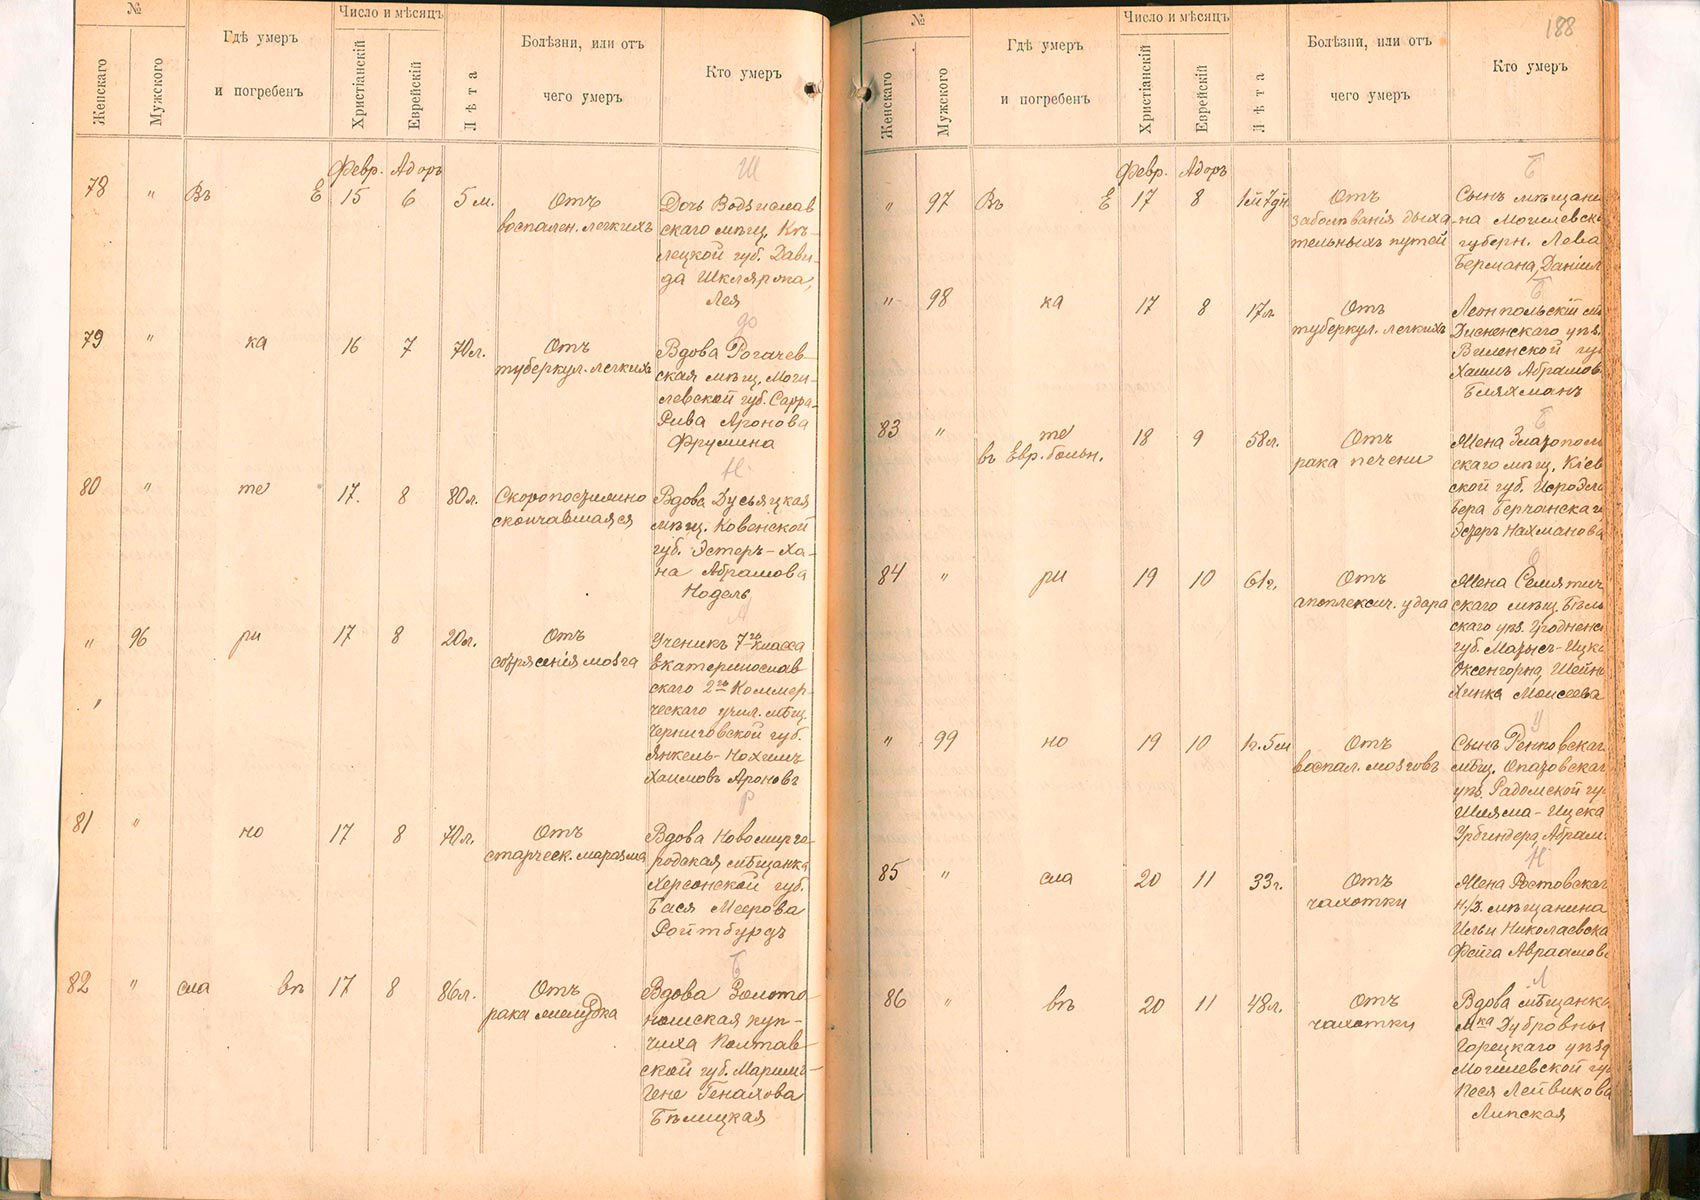 №
Число и мѣсяцъ
Женскаго
Мужского
Гдѣ умеръ
и погребенъ
Христіанскій
Еврейскій
Лѣта
Болѣзни, или отъ
чего умеръ
Кто умеръ
Февр. Адоръ
Ш
78 " Въ Е 15 6 5 м.
Отъ
воспален. легкихъ
Дочь Водзислав
скаго мѣщ. Кѣ-
лецкой губ. Дави-
да Шкляржа,
Лея
Ф
79 " ка 16 7 70 л.
Отъ
туберкул. легкихъ
Вдова Рогачев-
ская мѣщ. Моги-
левской губ. Сарра-
Рива Аронова
Фрумина
Н
80 " те 17. 8 80 л.
Скоропостижно
скончавшаяся
Вдова Дусьяцкая
мѣщ. Ковенской
губ. Эстеръ-Ха-
на Абрамова
Нодель
А
" 96 ри 17 8 20 л.
Отъ
сотрясенія мозга
Ученикъ 7го класса
Екатеринослав
скаго 2го Коммер-
ческаго учил. мѣщ.
Черниговской губ.
Янкель-Нохимъ
Хаимовъ Ароновъ
Р
81 " но 17 8 70 л.
Отъ
старческ. маразма
Вдова Новомирго-
родская мѣщанка
Херсонской губ.
Бася Меерова
Ройтбурдъ
Б
82 " сла въ 17 8 86 л.
Отъ
рака желудка
Вдова Золото-
ношская куп-
чиха Полтав-
ской губ. Марьям-
Гене Генахова
Бѣлицкая
188
№
Число и мѣсяцъ
Женскаго
Мужского
Гдѣ умеръ
и погребенъ
Христіанскій
Еврейскій
Лѣта
Болѣзни, или отъ
чего умеръ
Кто умеръ
Февр. Адоръ
Б
" 97 Въ Е 17 8 1 м 7 дн
Отъ
заболѣванія дыха-
тельныхъ путей
Сынъ мѣщани
на Могилевск
губерн. Лева
Бермана, Даніил
Б
" 98 ка 17 8 17 л.
Отъ
туберкул. легкихъ
Леонпольскій мѣ
Дисненскаго уѣз.
Виленской гу
Хаимъ Абрамов
Бляхманъ
Б
83 " те 18 9 58 л.
въ Евр. больн.
Отъ
рака печени
Жена Златополь
скаго мѣщ. Кіев
ской губ. Исроэль
Бера Берчанскаг
Эстеръ Нахманова
О
84 " ри 19 10 61 г.
Отъ
апоплексич. удара
Жена Семятич
скаго мѣщ. Бѣль
скаго уѣз. Гродненс
губ. Мотысъ-Ицко
Оксенгорна, Шейн
Хинка Моисеева
У
" 99 но 19 10 1 г. 5 м
Отъ
воспал. мозговъ
Сынъ Репковскаг
мѣщ. Опатовскаг
уѣз. Радомской гу
Шляма-Ицека
Урбиндера, Абрам
Н
85 " сла 20 11 33 г.
Отъ
чахотки
Жена Ростовскаг
н/Д. мѣщанина
Ильи Николаевска
Фейга Авраамов
Л
86 " въ 20 11 48 л.
Отъ
чахотки
Вдова мѣщанка
мка Дубровны
Горецкаго уѣзд
Могилевской гу
Песя Лейвикова
Липская